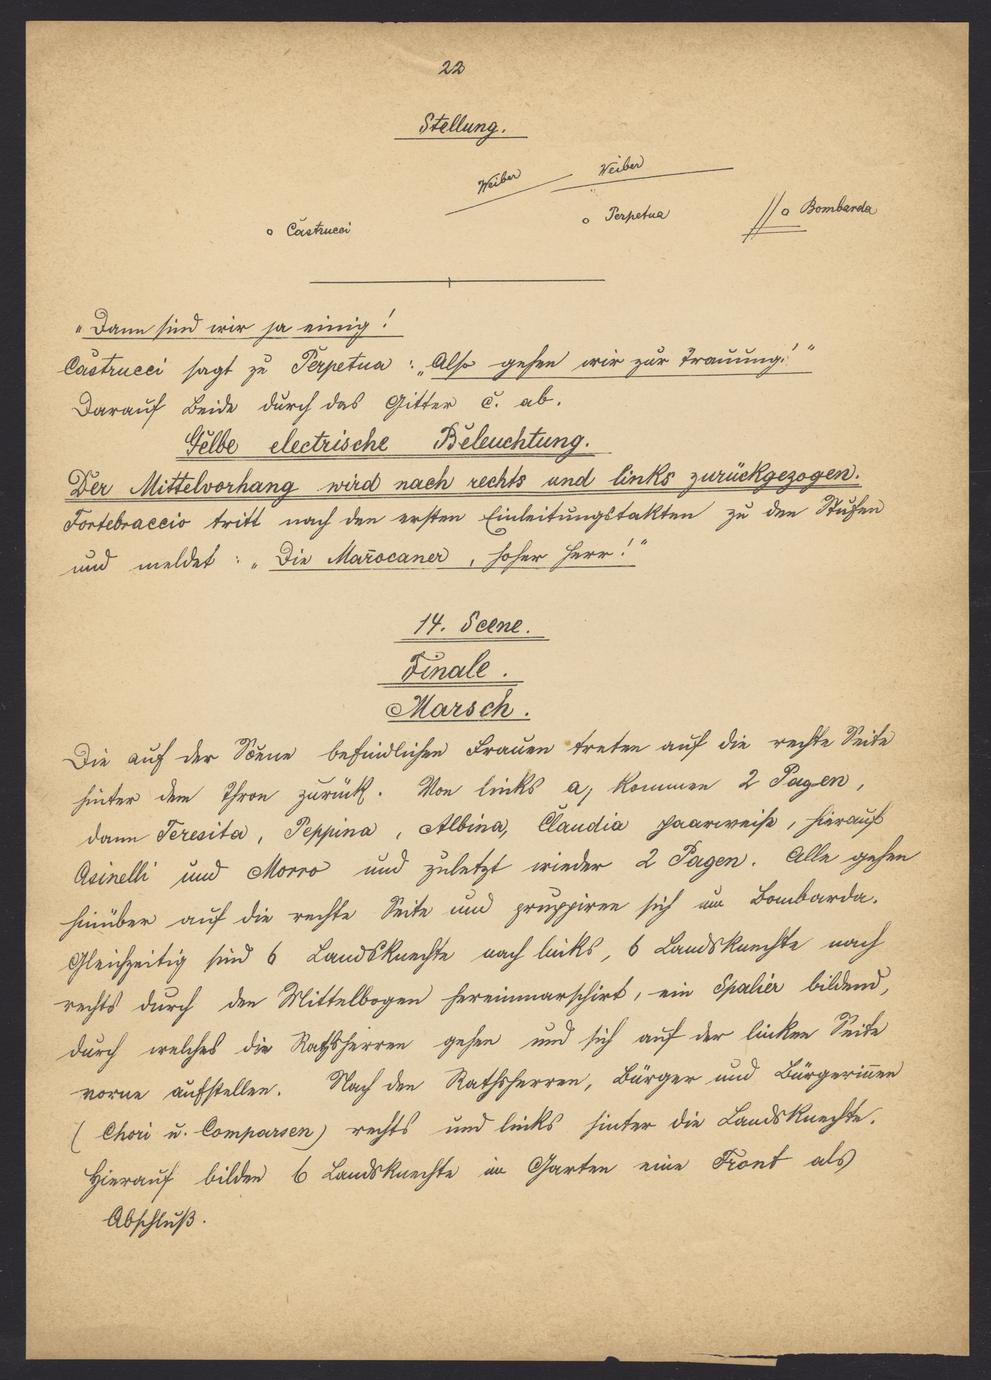 22
Stellung.
Weiber Weiber
o Castrucci o Perpetua o Bombarda
"Dann sind wir ja einig!
Castrucci sagt zu Perpetua : „Also gehen wir zur Trauung!"
Darauf Beide durch das Gitter c. ab.
Gelbe electrische Beleuchtung.
Der Mittelvorhang wird nach rechts und links zurückgezogen.
Fortebraccio tritt nach den ersten Einleitungstakten zu den Stufen
und meldet : „Die Marocaner, hoher Herr!"
14. Scene.
Finale.
Marsch.
Die auf der Scene befindlichen Frauen treten auf die rechte Seite
hinter dem Thron zurück. Von links a, kommen 2 Pagen,
dann Teresita, Peppina, Albina, Claudia paarweise, hierauf
Asinelli und Morro und zuletzt wieder 2 Pagen. Alle gehen
hinüber auf die rechte Seite und gruppiren sich um Bombarda.
Gleichzeitig sind 6 Landsknechte nach links, 6 Landsknechte nach
rechts durch den Mittelbogen hereinmarschirt, ein Spalier bildend,
durch welches die Rathsherren gehen und sich auf der linken Seite
vorne aufstellen. Nach den Rathsherren, Bürger und Bürgerin̄en
(Chori u. Comparsen) rechts und links hinter die Landsknechte.
Hierauf bilden 6 Landsknechte im Garten eine Front als
Abschluß.